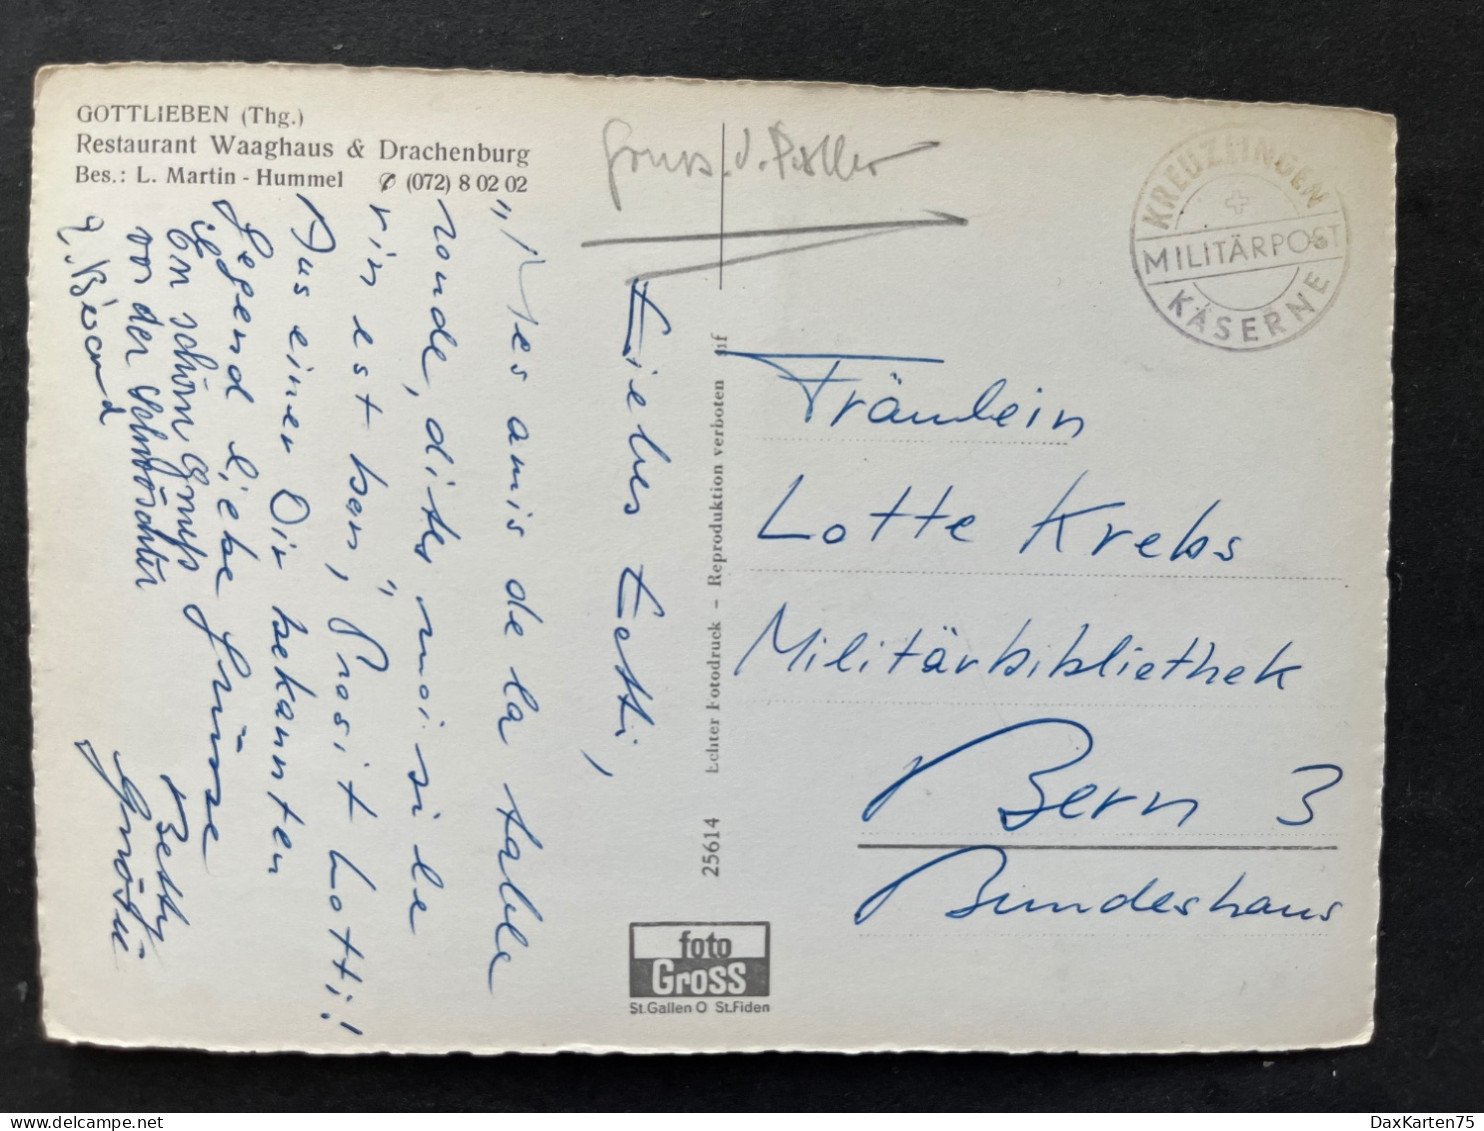 GOTTLIEBEN (Thg.)
Restaurant Waaghaus & Drachenburg
Bes.: L. Martin - Hummel ✆ (072) 8 02 02
Gruss
KREUZLINGEN
MILITÄRPOST
KASERNE
Liebes Lotti,
"Mes amis de la table
ronde, dites moi si le
vin est bon", Prosit Lotti!
Aus einer Dir bekannten
Gegend liebe Grüsse
Betty
En schön Gruss
von der
Echter Fotodruck – Reproduktion verboten
25614
Fräulein
Lotte Krebs
Militärbibliothek
Bern 3
Bundeshaus
foto
Gross
St.Gallen O St.Fiden
DaxKarten75